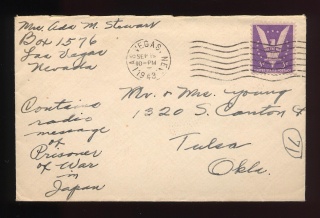 Mrs. Ada M. Stewart
Box 1576
Las Vegas
Nevada
LAS VEGAS, NEV.
SEP
PM
1943
Mr. & Mrs. Young
1320 S. Canton
Tulsa
Okla.
Contains
radio
message
of
Prisoner
of War
in
Japan
71